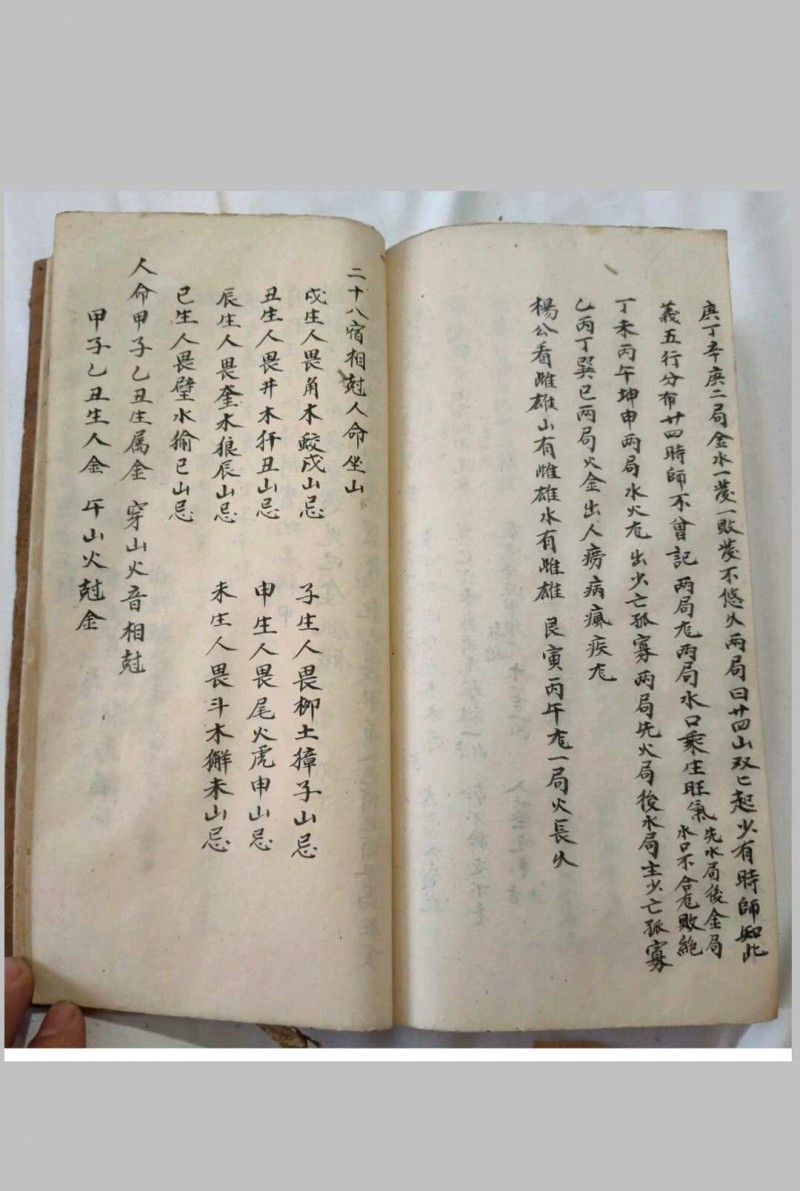 庚丁辛庚二局金水一發一敗發不悠久兩局曰廿四山双匕起少有時師知此
義五行分布廿四時師不曾記兩局尅兩局水口乘生旺氣先水局後金局
水口不合尅敗絕
丁未丙午坤申兩局水火尅出少亡孤寡兩局先火局後水局主少亡孤寡
乙丙丁巽巳兩局火金出人癆病瘋疾尅
楊公看雌雄山有雌雄水有雌雄 艮寅丙午尅一局火長久
二十八宿相尅人命坐山
戌生人畏角木蛟戌山忌 子生人畏柳土獐子山忌
丑生人畏井木犴丑山忌 申生人畏尾火虎申山忌
辰生人畏奎木狼辰山忌 未生人畏斗木獬未山忌
巳生人畏壁水㺄巳山忌
人命甲子乙丑生属金 穿山火音相尅
甲子乙丑生人金 午山火尅金